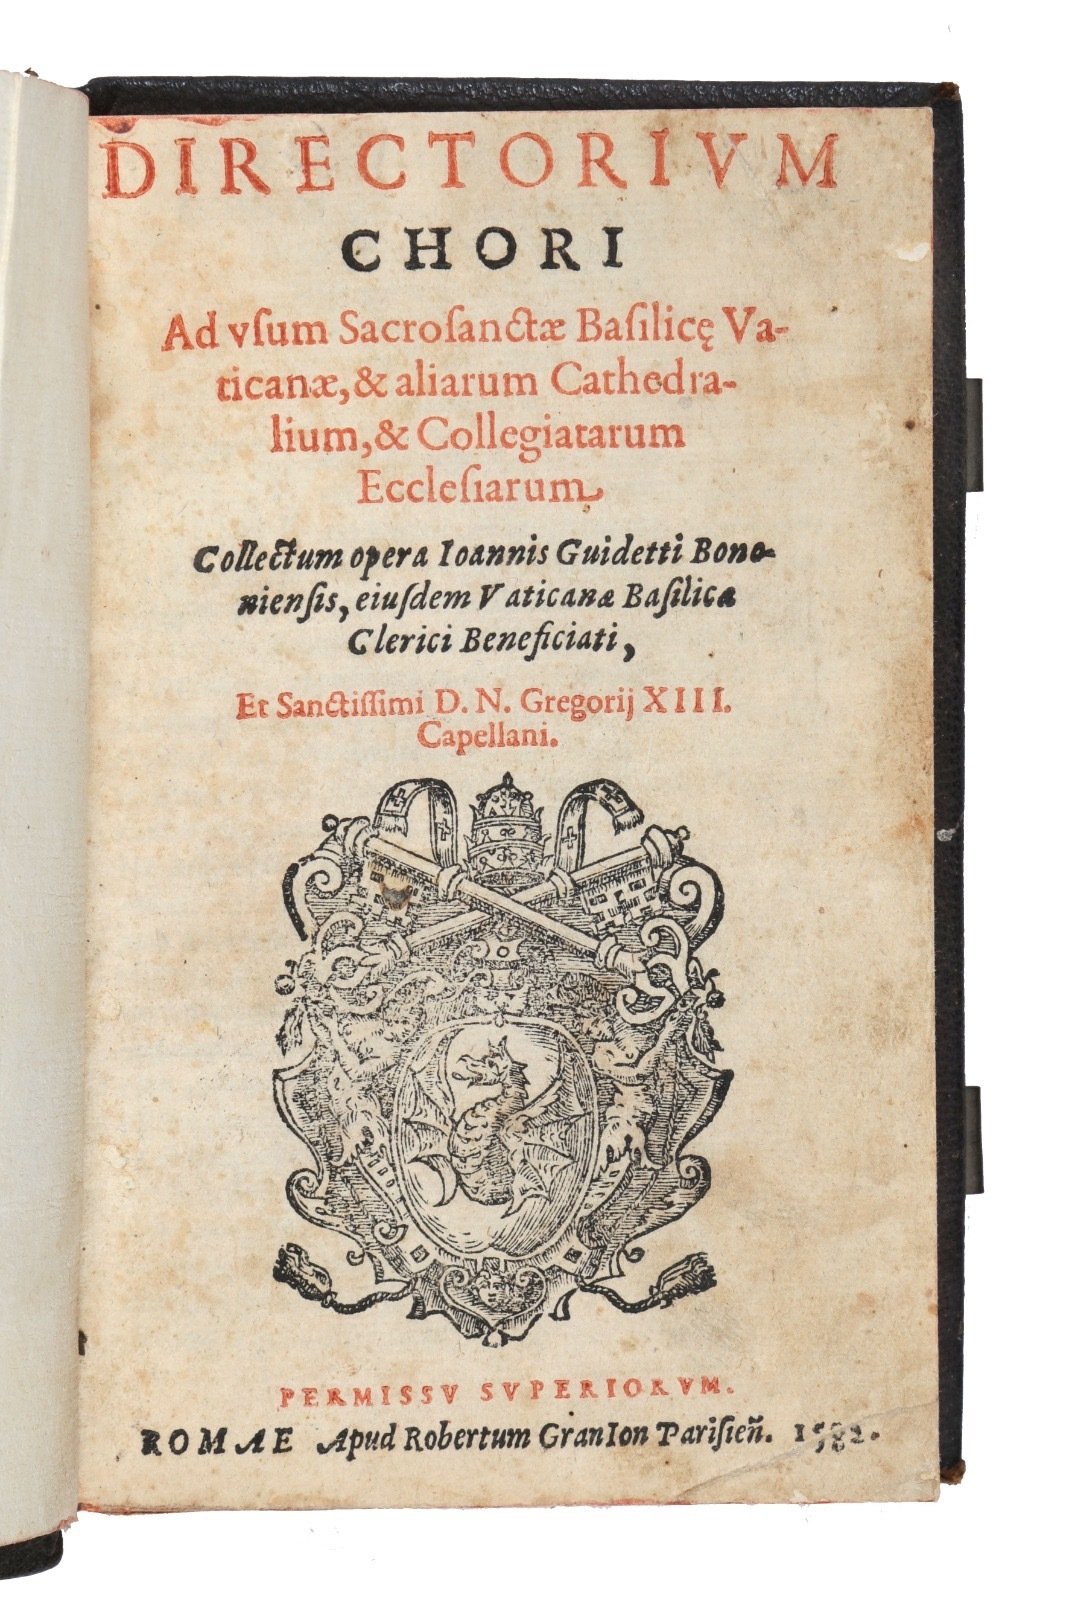 DIRECTORIVM
CHORI
Ad vſum Sacroſanctæ Baſilicę Va-
ticanæ, & aliarum Cathedra-
lium, & Collegiatarum
Eccleſiarum
Collectum opera Ioannis Guidetti Bono-
nienſis, eiuſdem Vaticanæ Baſilicæ
Clerici Beneficiati,
Et Sanctiſſimi D. N. Gregorij XIII.
Capellani.
PERMISSV SVPERIORVM.
ROMAE Apud Robertum GranIon Pariſieñ. 1582.